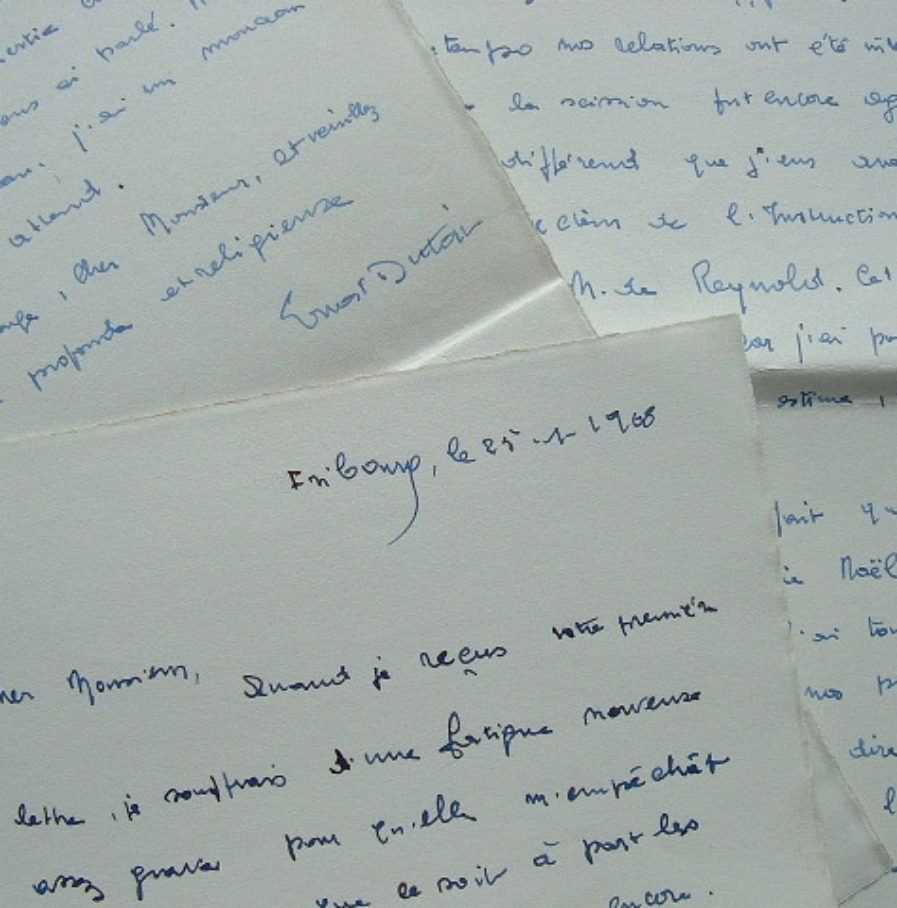 ai parlé.
j'ai un monceau
attend.
cher Monsieur, et veuillez
profonde et religieuse
Ernest Dutoit
temps nos relations ont été
la scission fut encore
différend que j'eus
de l'Instruction
M. de Reynold.
car j'ai
estime,
fait
Noël
nos
dire
Fribourg, le 25 1968
Monsieur, Quand je reçus votre première
lettre, je souffrais d'une fatigue nerveuse
assez grave pour qu'elle m'empêchât
que ce soit à part les
encore.